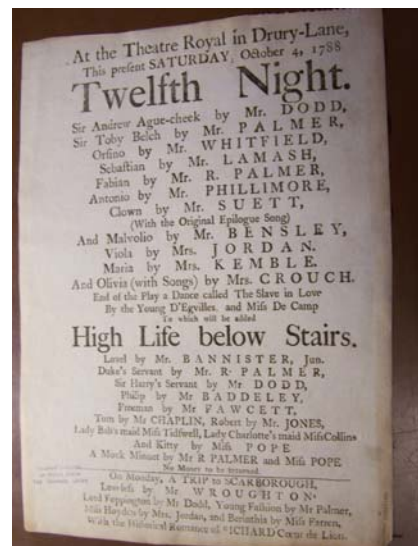 At the Theatre Royal in Drury-Lane,
This present SATURDAY, October 4, 1788
Twelfth Night.
Sir Andrew Ague-cheek by Mr. DODD,
Sir Toby Belch by Mr. PALMER,
Orsino by Mr. WHITFIELD,
Sebaſtian by Mr. LAMASH,
Fabian by Mr. R. PALMER,
Antonio by Mr. PHILLIMORE,
Clown by Mr. SUETT,
(With the Original Epilogue Song)
And Malvolio by Mr. BENSLEY,
Viola by Mrs. JORDAN.
Maria by Mrs. KEMBLE.
And Olivia (with Songs) by Mrs. CROUCH.
End of the Play a Dance called The Slave in Love
By the Young D'Egvilles, and Miſs De Camp
To which will be added
High Life below Stairs.
Lovel by Mr. BANNISTER, Jun.
Duke's Servant by Mr. R. PALMER,
Sir Harry's Servant by Mr DODD,
Philip by Mr BADDELEY,
Freeman by Mr FAWCETT,
Tom by Mr CHAPLIN, Robert by Mr. JONES,
Lady Bab's maid Miſs Tidſwell, Lady Charlotte's maid Miſs Collins
And Kitty by Miſs POPE
A Mock Minuet by Mr R PALMER and Miſs POPE
No Money to be returned.
On Monday, A TRIP to SCARBOROUGH,
Loveleſs by Mr WROUGHTON.
Lord Foppington by Mr Dodd, Young Faſhion by Mr Palmer,
Miſs Hoyden by Mrs. Jordan, and Berinthia by Miſs Farren,
With the Hiſtorical Romance of RICHARD Cœur de Lion.